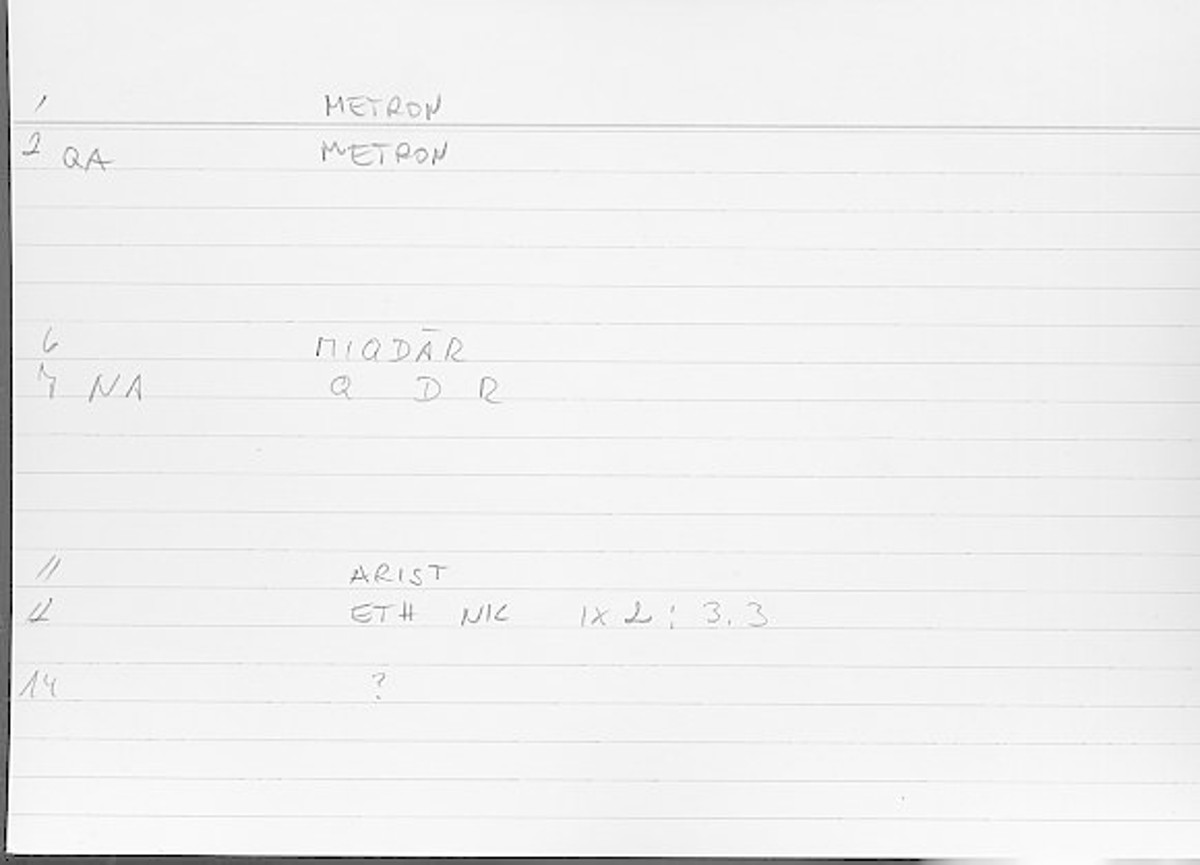 1 METRON
2 QA METRON
6 MIQDĀR
7 NA Q D R
11 ARIST
12 ETH NIC IX 2 ; 3.3
14 ?